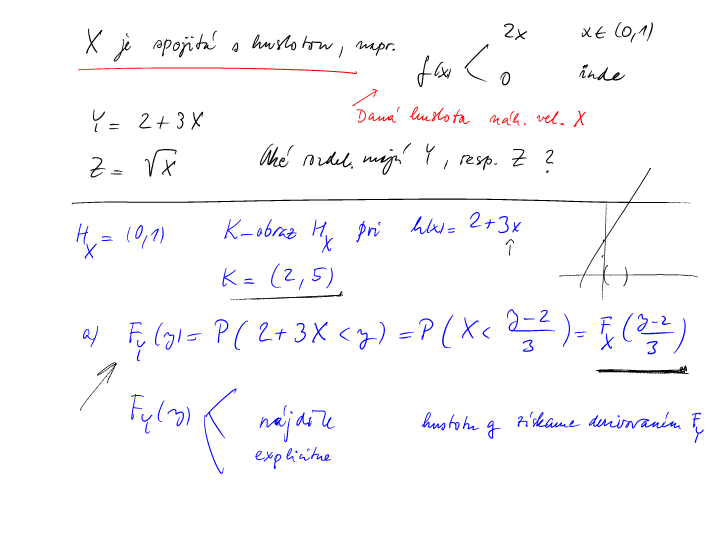 X je spojitá s hustotou, napr. f(x) < 2x x ∈ (0,1)
0 inde
Daná hustota náh. vel. X
Y = 2 + 3X
Z = √X Aké rozdel. majú Y, resp. Z ?
H_X = (0,1) K – obraz H_X pri h(x) = 2+3x
K = (2,5)
a) F_Y(y) = P( 2+3X < y ) = P( X < (y-2)/3 ) = F_X( (y-2)/3 )
F_Y(y) < nájdite hustotu g získame derivovaním F_Y
explicitne